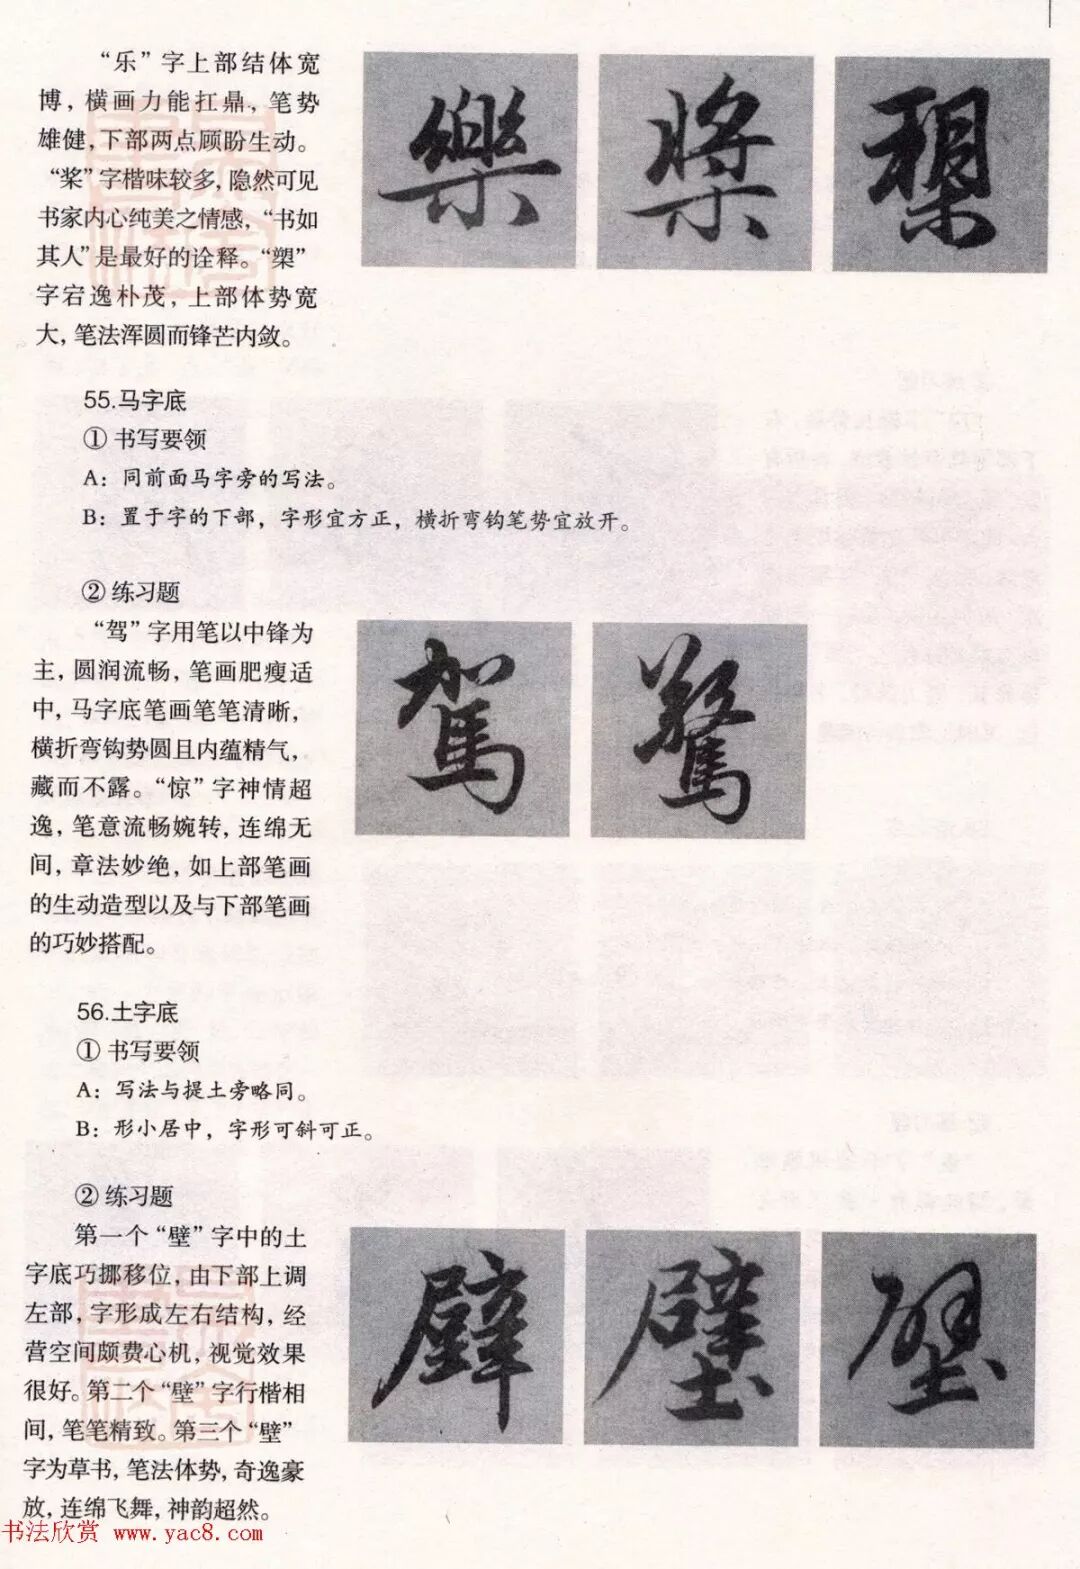 “乐”字上部结体宽
博，横画力能扛鼎，笔势
雄健，下部两点顾盼生动。
“桨”字楷味较多，隐然可见
书家内心纯美之情感，“书如
其人”是最好的诠释。“槊”
字宕逸朴茂，上部体势宽
大，笔法浑圆而锋芒内敛。
樂 槳 槊
55.马字底
① 书写要领
A：同前面马字旁的写法。
B：置于字的下部，字形宜方正，横折弯钩笔势宜放开。
② 练习题
“驾”字用笔以中锋为
主，圆润流畅，笔画肥瘦适
中，马字底笔画笔笔清晰，
横折弯钩势圆且内蕴精气，
藏而不露。“惊”字神情超
逸，笔意流畅婉转，连绵无
间，章法妙绝，如上部笔画
的生动造型以及与下部笔画
的巧妙搭配。
駕 驚
56.土字底
① 书写要领
A：写法与提土旁略同。
B：形小居中，字形可斜可正。
② 练习题
第一个“壁”字中的土
字底巧挪移位，由下部上调
左部，字形成左右结构，经
营空间颇费心机，视觉效果
很好。第二个“壁”字行楷相
间，笔笔精致。第三个“壁”
字为草书，笔法体势，奇逸豪
放，连绵飞舞，神韵超然。
壁 壁 壁
书法欣赏 www.yac8.com